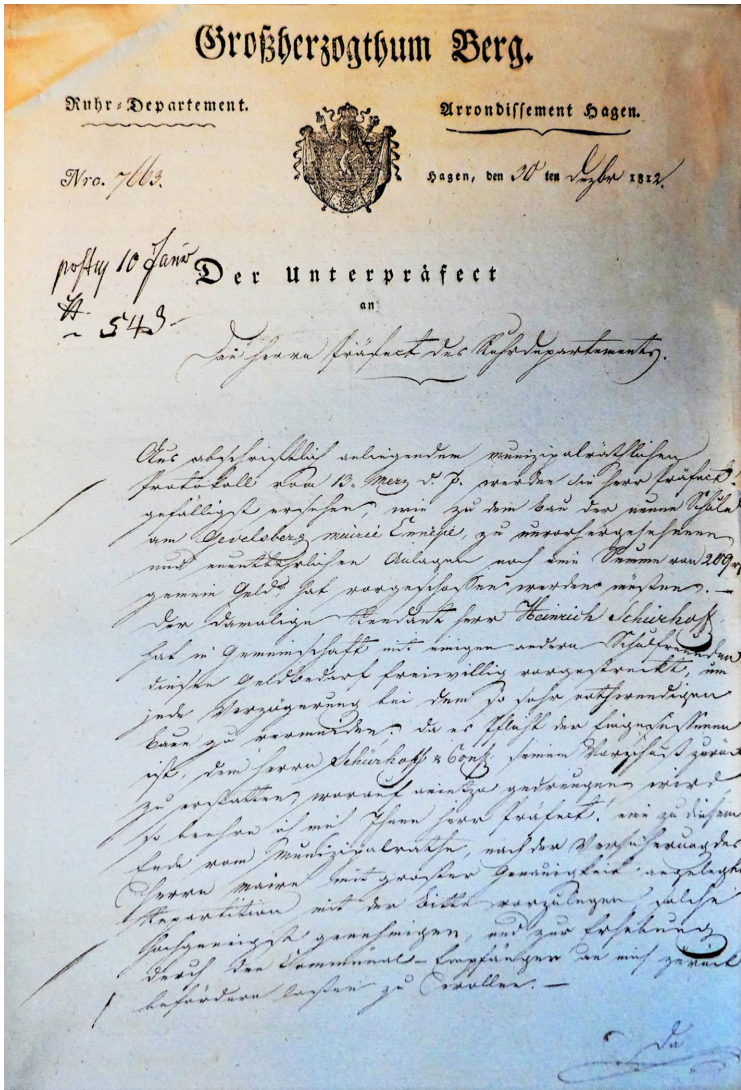 Großherzogthum Berg.
Ruhr-Departement.
Arrondissement Hagen.
Nro. 7663.
Hagen, den 30 ten Dezbr 1812.
10 Janr
543
Der Unterpräfect
an
Den Herrn Präfect des Ruhrdepartements.
Aus abschriftlich anliegendem munizipalräthlichen
Protokoll vom 13. Merz d. J. werden Sie Herr Präfect
gefälligst ersehen, wie zu dem Bau der neuen Schule
am Gevelsberg mairie Ennepe, zu unvorhergesehenen
und unentbehrlichen Anlagen noch eine Summe von 209
gemein Geld hat vorgeschossen werden müssen. —
Der damalige Rendant Herr Heinrich Schürhoff
hat in Gemeinschaft mit einigen andern Schulfreunden
diesen Geldbedarf freiwillig vorgestreckt, um
jede Verzögerung bei dem so sehr nothwendigen
Baue zu vermeiden. Da es Pflicht der Eingesessenen
ist, dem Herrn Schürhoff & Cons. seinen Vorschuß zurück
zu erstatten, worauf gedrungen wird
so beehre ich mich Ihnen Herr Präfect, eine zu diesem
Ende vom Munizipalrathe, nach der Versicherung des
Herrn Maire mit großer Genauigkeit angelegte
Repartition mit der Bitte vorzulegen, solche
hochgeneigst genehmigen, und zur Erhebung
durch den Communal-Empfänger an mich zurück
befördern lassen zu wollen. —
Da